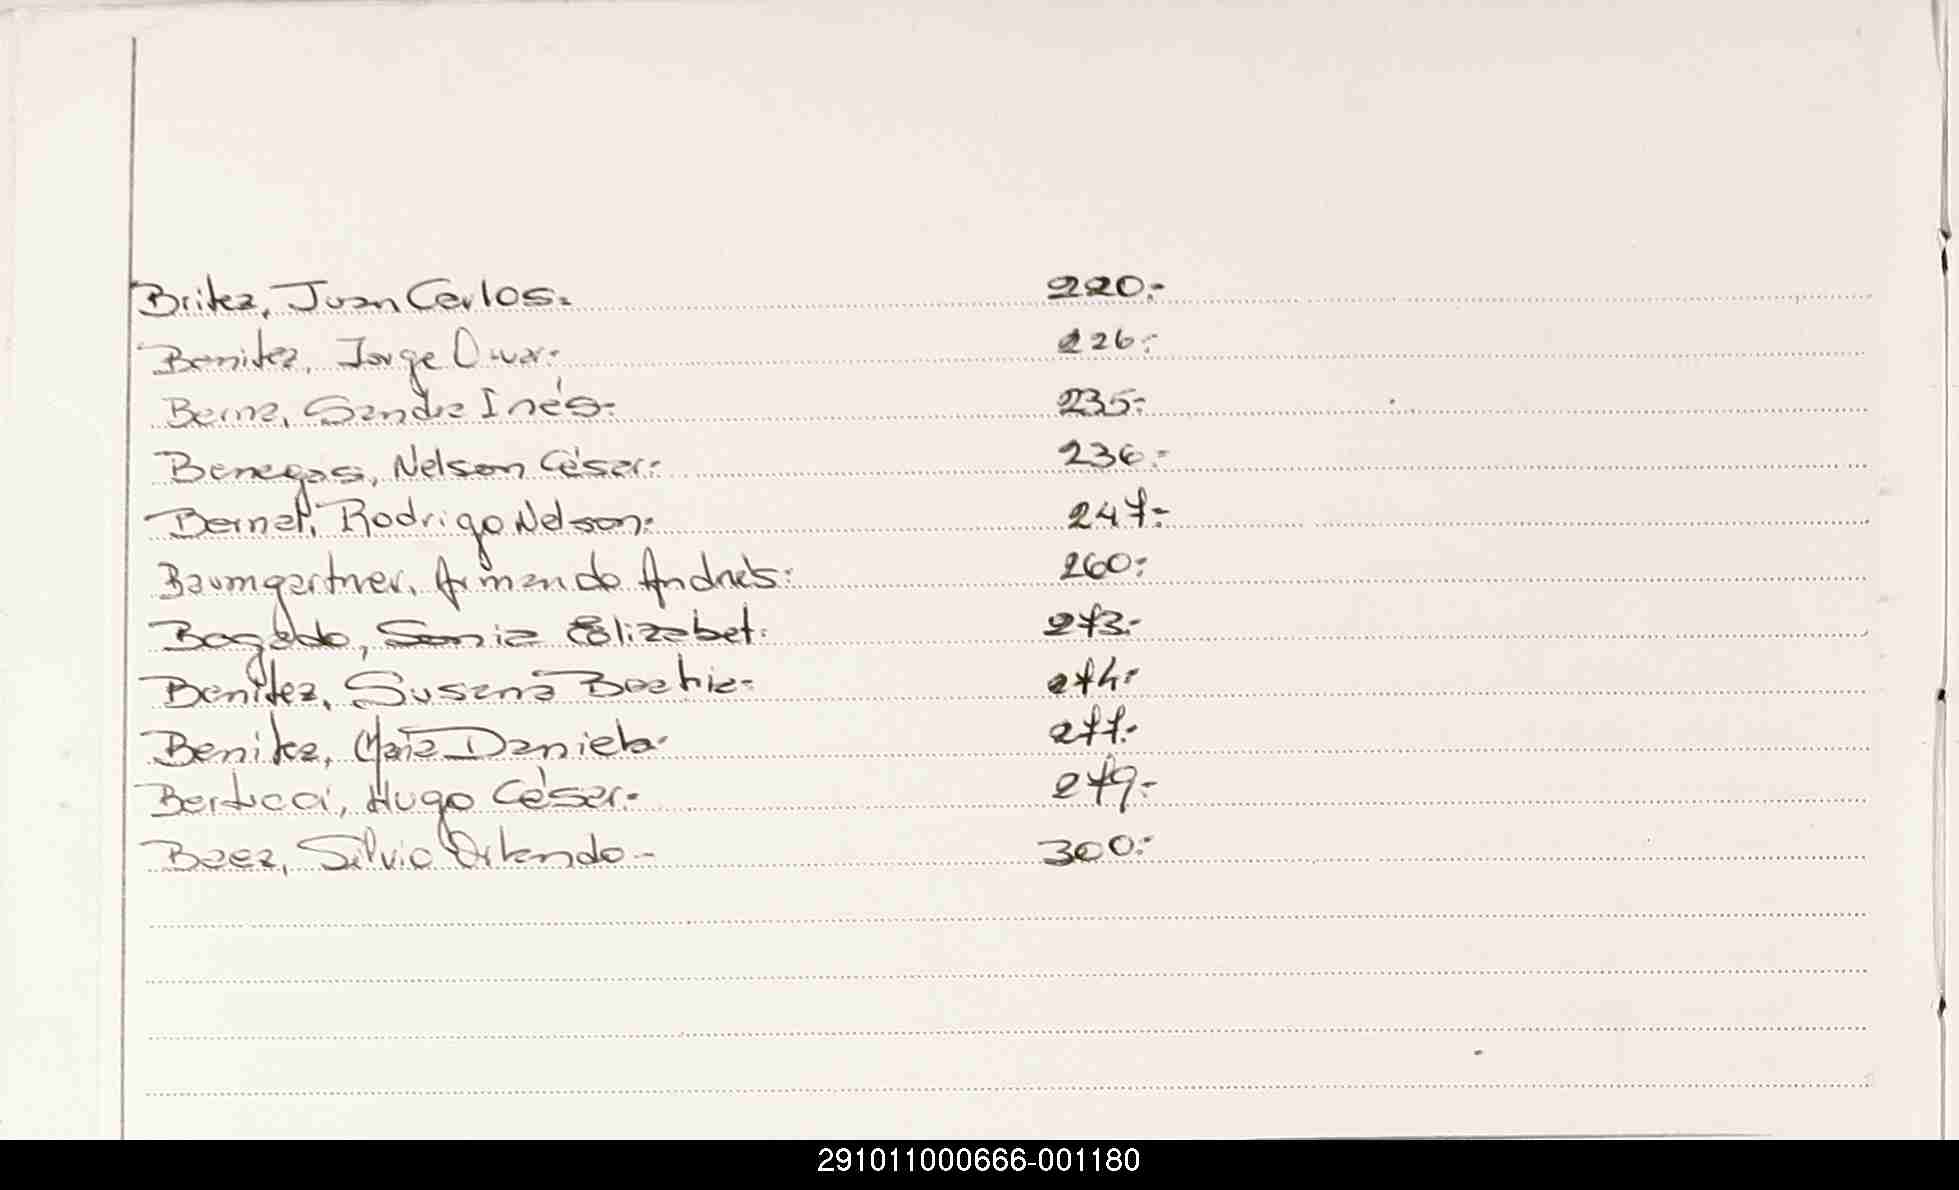 Britez, Juan Carlos.- 220.-
Benitez, Jorge Omar.- 226.-
Berna, Sandra Inés.- 235.-
Benegas, Nelson César.- 236.-
Bernal, Rodrigo Nelson.- 247.-
Baumgartner, Armando Andrés.- 260.-
Bogado, Sonia Elizabet.- 273.-
Benitez, Susana Beatriz.- 274.-
Benitez, María Daniela.- 277.-
Bertucci, Hugo César.- 279.-
Baez, Silvio Orlando.- 300.-
291011000666-001180